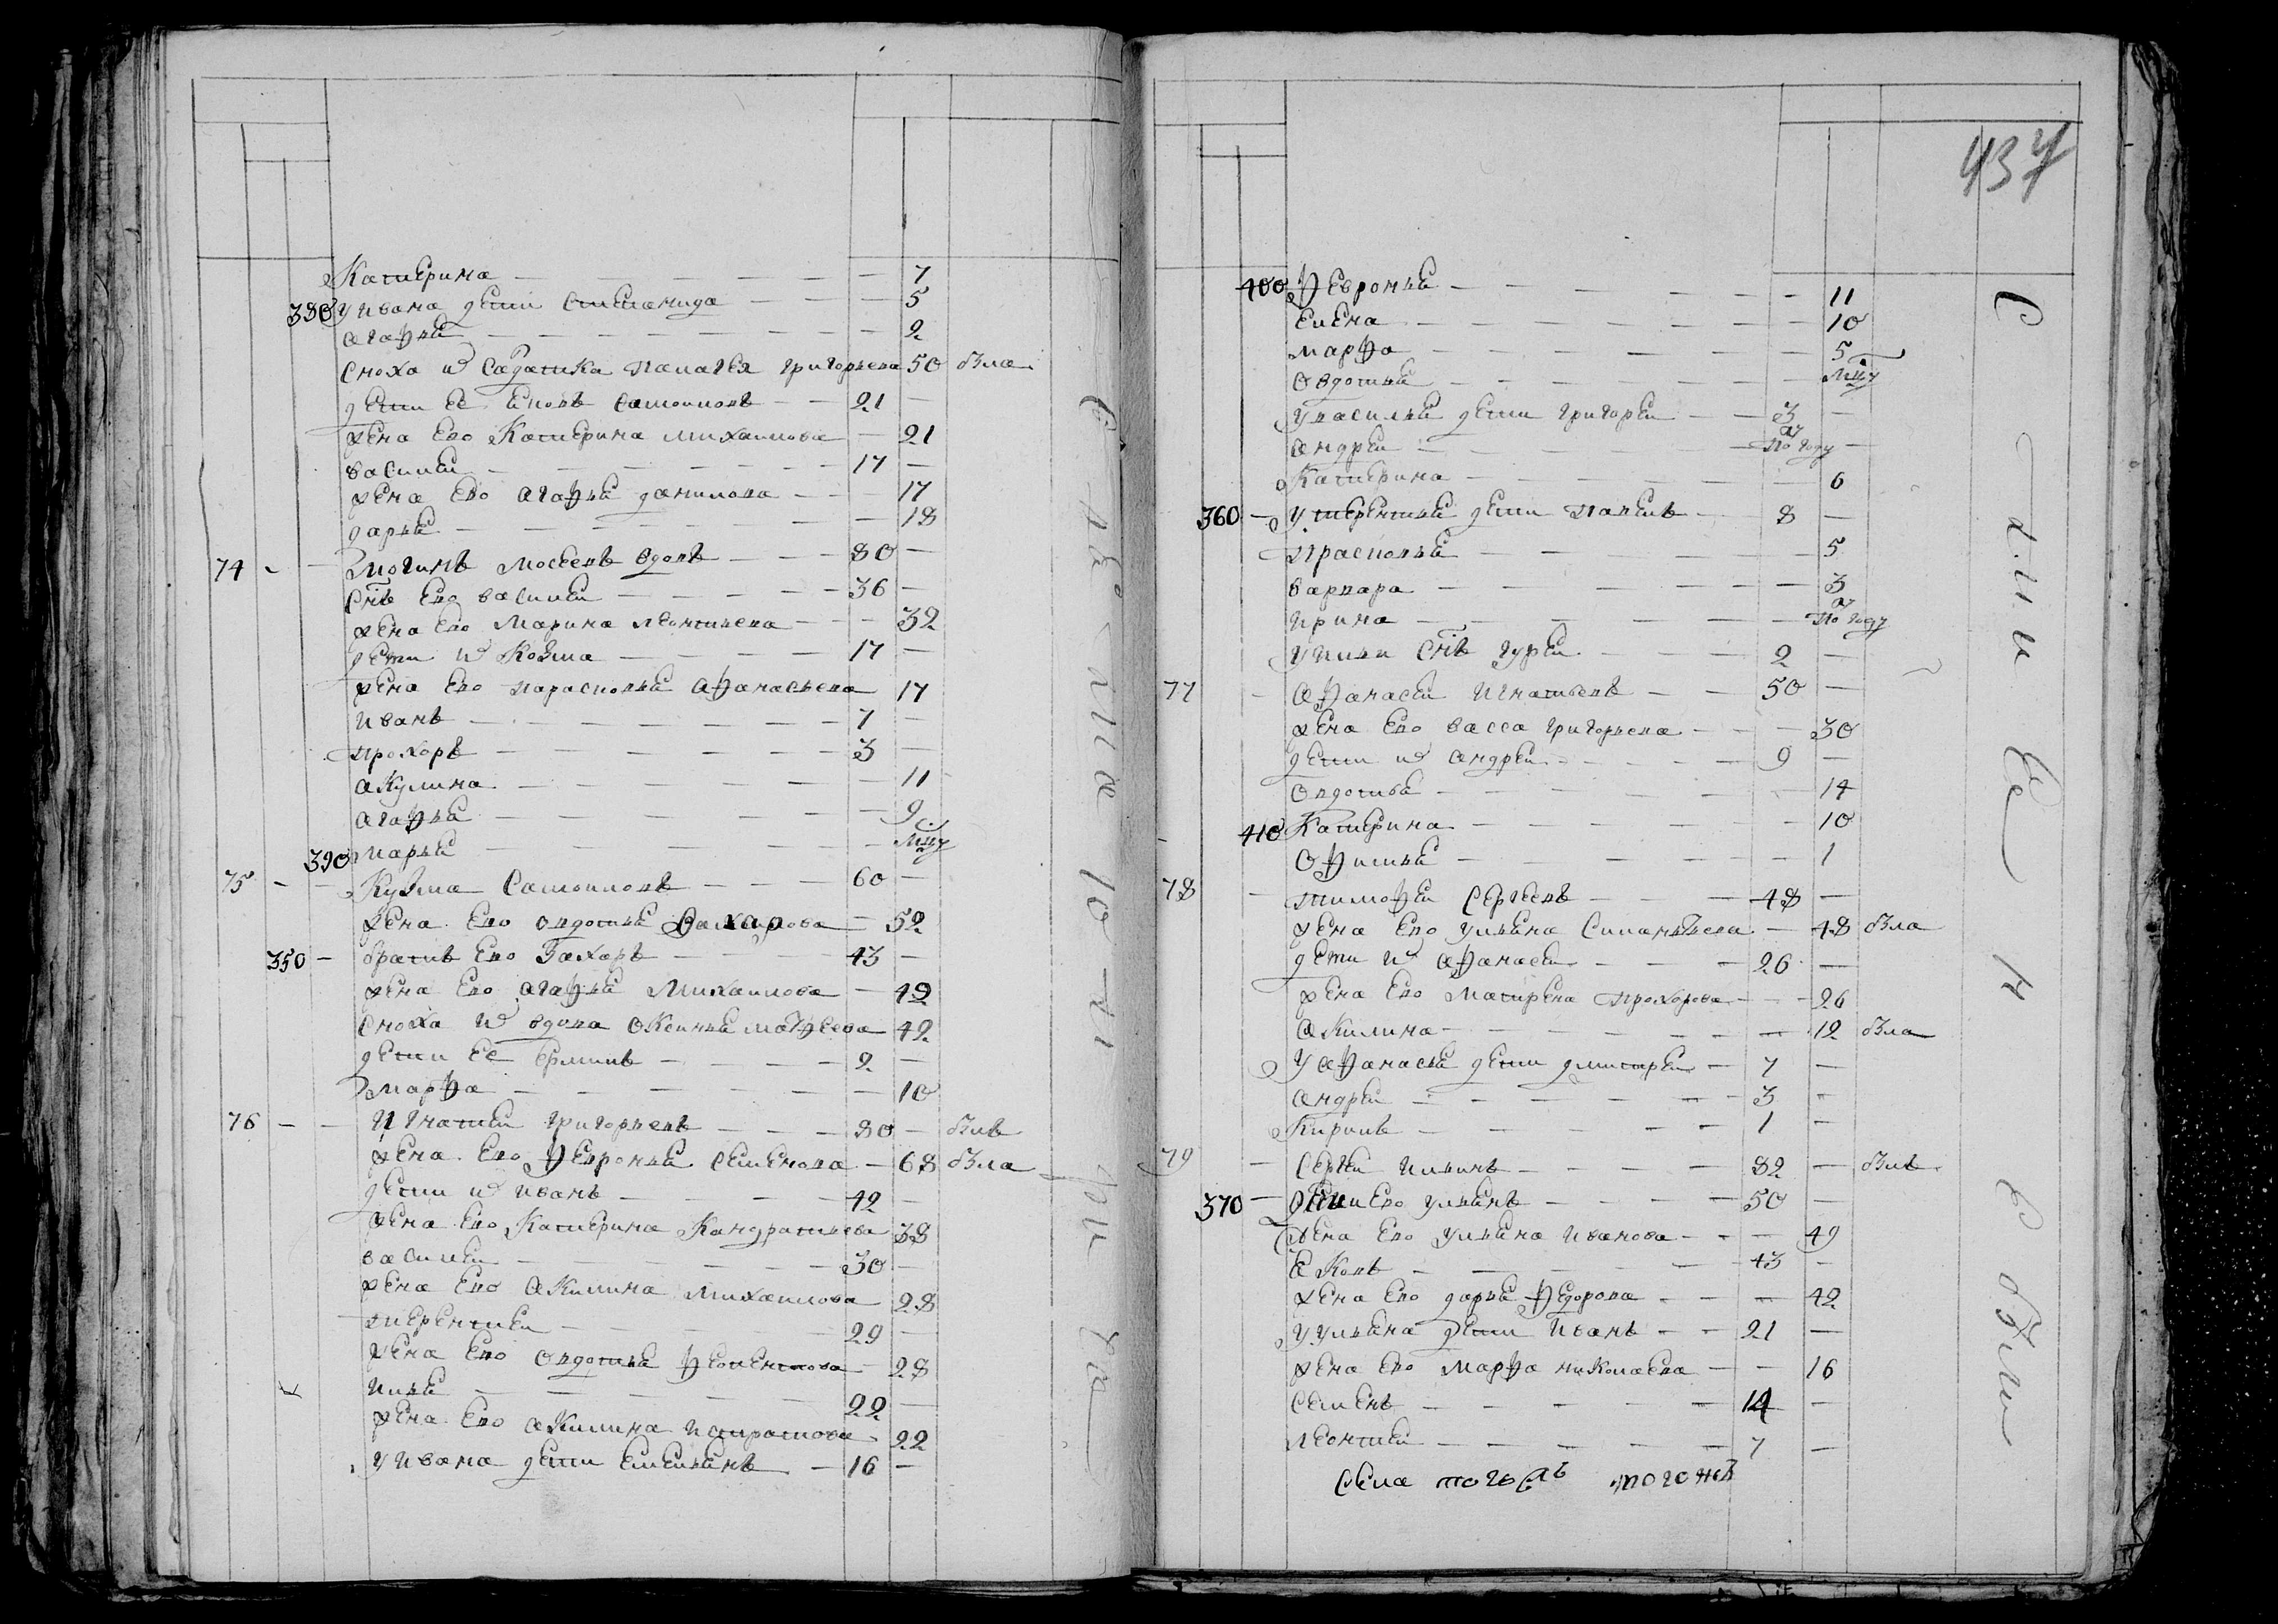 Катерина — 7
380 У Ивана дети Степанида — 5
Агафья — 2
Сноха их салдатка Палагея Григорьева 50 бъла
дети ее Яковъ Самоиловъ — 21 —
жена ево Катерина Михаилова — 21
Василеи — 17 —
жена ево Агафья Данилова — 17
Дарья — 18
74 Логинъ Мосеевъ вдовъ — 80 —
Снъ ево Василеи — 36 —
жена ево Марина Леонтьева — 32
дети их Козма — 17 —
жена ево Парасковья Афанасьева 17
Иванъ — 7 —
Прохоръ — 3 —
Акулина — 11
Агафья — 9
390 Марья — мцу
75 Кузма Самоиловъ — 60 —
жена ево Овдотья Захарова — 52
350 братъ ево Захаръ — 43 —
жена ево Агафья Михаилова — 42
Сноха их вдова Оксинья Матфеева 42
дети ее Ермилъ — 2 —
Марфа — 10
76 Игнатеи Григорьевъ — 80 — бълъ
жена ево Февронья Семенова — 68 бъла
дети их Иванъ — 42 —
жена ево Катерина Кандратьева 38
Василеи — 30 —
жена ево Акилина Михаилова 28
Терентеи — 29 —
жена ево Овдотья Феоктистова — 28
Илья — 22 —
жена ево Акилина 22
У Ивана дети Емельянъ — 16 —
437
400 Февронья — 11
Елена — 10
Марфа — 5
Овдотья — мцу
У Василья дети Григореи — 3 —
Андреи — по году —
Катерина — 6
360 У Терентья дети Павелъ — 8 —
Прасковья — 5
Варвара — 3
Ирина — по году
У Ильи снъ Гуреи — 2 —
77 Афанасеи Игнатьевъ — 50 —
жена ево Васса Григорьева — 30
дети их Андреи — 9 —
Овдотья — 14
410 Катерина — 10
Офимья — 1
78 Тимофеи Сергеевъ — 48 —
жена ево Ульяна Силантьева — 48 бъла
дети их Афанасеи — 26 —
жена ево Матрена Прохорова — 26
Акилина — 12 бъла
У Афанасья дети Дмитреи — 7 —
Андреи — 3 —
Кирилъ — 1 —
79 Сергеи Ильинъ — 82 — бълъ
370 дети ево Ульянъ — 50 —
жена ево Ульяна Иванова — 49
Яковъ — 43 —
жена ево Дарья Федорова — 42
У Ульяна дети Иванъ — 21 —
жена ево Марфа Николаева — 16
Семенъ — 14 —
Леонтеи — 7 —
Села